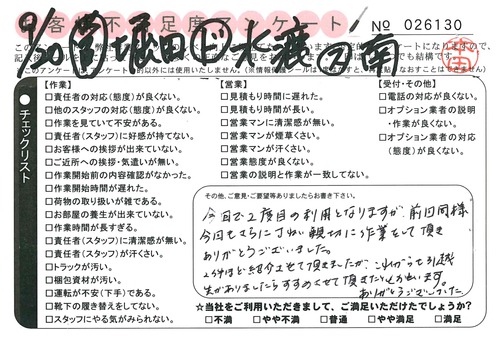 お客様不満足度アンケート
No 026130
9/20
堀田
水渡
南
【作業】
□責任者の対応(態度)が良くない。
□他のスタッフの対応(態度)が良くない。
□作業を見ていて不安がある。
□責任者(スタッフ)に好感が持てない。
□お客様への挨拶が出来ていない。
□ご近所への挨拶・気遣いが無い。
□作業開始前の内容確認がなかった。
□作業開始時間が遅れた。
□荷物の取り扱いが雑である。
□お部屋の養生が出来ていない。
□作業時間が長すぎる。
□責任者(スタッフ)に清潔感が無い。
□責任者(スタッフ)が汗くさい。
□トラックが汚い。
□梱包資材が汚い。
□運転が不安(下手)である。
□靴下の履き替えをしてない。
□スタッフにやる気がみられない。
【営業】
□見積もり時間に遅れた。
□見積もり時間が長い。
□営業マンに清潔感が無い。
□営業マンが煙草くさい。
□営業マンが汗くさい。
□営業態度が良くない。
□営業の説明と作業が一致してない。
【受付・その他】
□電話の対応が良くない。
□オプション業者の説明
・作業が良くない。
□オプション業者の対応
(態度)が良くない。
チェックリスト
その他、ご意見・ご要望等ありましたらお書き下さい。
今回で2度目の利用となりますが、前回同様
今回もさらにていねい親切に作業をして頂き
ありがとうございました。
2件ほど紹介させて頂きましたが、これからも引越
先がありましたらすすめさせて頂きたいと思います。
ありがとうございました
☆当社をご利用いただきまして、ご満足いただけたでしょうか?
□不満 □やや不満 □普通 □やや満足 □満足